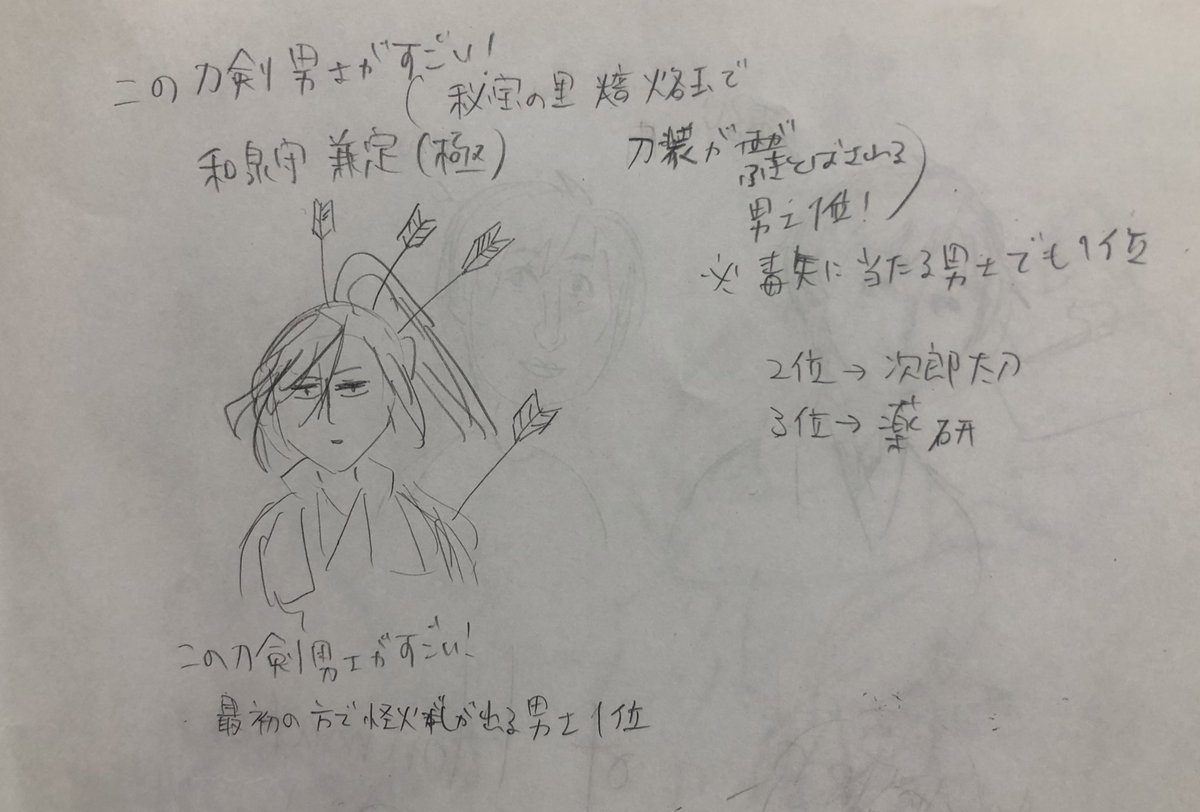 この刀剣男士がすごい!
(秘宝の里 焙烙玉で
和泉守 兼定(極)
刀装が
ふきとばされる
男士1位!)
※毒矢に当たる男士でも1位
2位→次郎太刀
3位→薬研
この刀剣男士がすごい!
最初の方で怪火札が出る男士1位